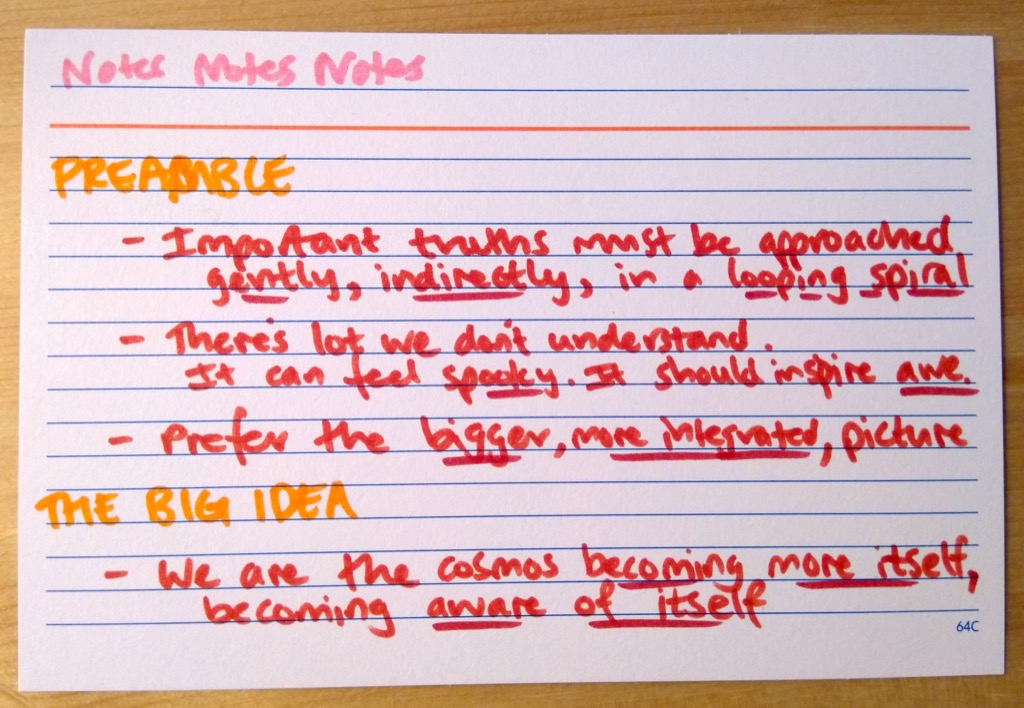 Notes Notes Notes
PREAMBLE
- Important truths must be approached
gently, indirectly, in a looping spiral
- There's lot we don't understand.
It can feel spooky. It should inspire awe.
- Prefer the bigger, more integrated, picture
THE BIG IDEA
- We are the cosmos becoming more itself,
becoming aware of itself
64C